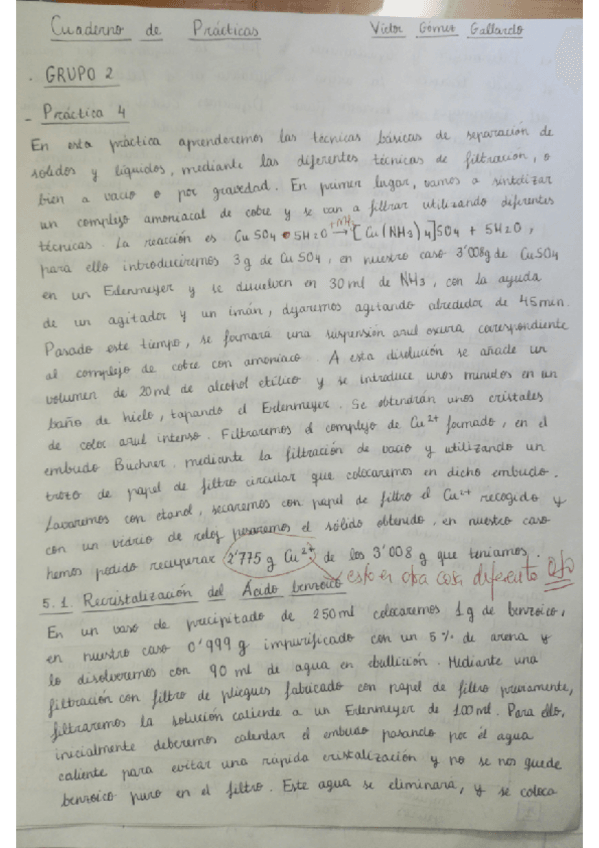 Cuaderno de Prácticas Víctor Gómez Gallardo
. GRUPO 2
- Práctica 4
En esta práctica aprenderemos las técnicas básicas de separación de
sólidos y líquidos, mediante las diferentes técnicas de filtración, o
bien a vacío o por gravedad. En primer lugar, vamos a sintetizar
un complejo amoniacal de cobre y se van a filtrar utilizando diferentes
técnicas. La reacción es CuSO4 • 5H2O +NH3 → [Cu(NH3)4]SO4 + 5H2O,
para ello introduciremos 3 g de CuSO4, en nuestro caso 3'008g de CuSO4
en un Erlenmeyer y se disuelven en 30 ml de NH3, con la ayuda
de un agitador y un imán, dejaremos agitando alrededor de 45 min.
Pasado este tiempo, se formara una suspensión azul oscura correspondiente
al complejo de cobre con amoniaco. A esta disolución se añade un
volumen de 20 ml de alcohol etílico y se introduce unos minutos en un
baño de hielo, tapando el Erlenmeyer. Se obtendrán unos cristales
de color azul intenso. Filtraremos el complejo de Cu2+ formado, en el
embudo Buchner mediante la filtración de vacío y utilizando un
trozo de papel de filtro circular que colocaremos en dicho embudo.
Lavaremos con etanol, secaremos con papel de filtro el Cu2+ recogido y
con un vidrio de reloj pesaremos el sólido obtenido, en nuestro caso
hemos podido recuperar 2'775 g Cu2+ de los 3'008 g que teníamos.
esto es otra cosa diferente ojo
5.1. Recristalización del Ácido benzoico
En un vaso de precipitado de 250 ml colocaremos 1g de benzoico,
en nuestro caso 0'999 g impurificado con un 5% de arena y
lo disolveremos con 90 ml de agua en ebullición. Mediante una
filtración con filtro de pliegues fabricado con papel de filtro previamente,
filtraremos la solución caliente a un Erlenmeyer de 100 ml. Para ello,
inicialmente deberemos calentar el embudo pasando por él agua
caliente para evitar una rápida cristalización y no se nos quede
benzoico puro en el filtro. Este agua se eliminará, y se coloca